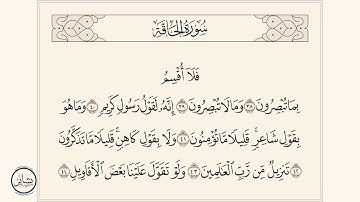 سُورَةُ الحَاقَّةِ
فَلَآ أُقۡسِمُ
بِمَا تُبۡصِرُونَ ٣٨ وَمَا لَا تُبۡصِرُونَ ٣٩ إِنَّهُۥ لَقَوۡلُ رَسُولٖ كَرِيمٖ ٤٠ وَمَا هُوَ
بِقَوۡلِ شَاعِرٖۚ قَلِيلٗا مَّا تُؤۡمِنُونَ ٤١ وَلَا بِقَوۡلِ كَاهِنٖۚ قَلِيلٗا مَّا تَذَكَّرُونَ
٤٢ تَنزِيلٞ مِّن رَّبِّ ٱلۡعَٰلَمِينَ ٤٣ وَلَوۡ تَقَوَّلَ عَلَيۡنَا بَعۡضَ ٱلۡأَقَاوِيلِ ٤٤